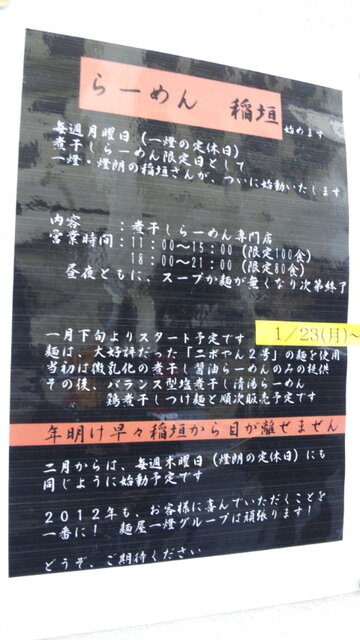 らーめん 稲垣
始めます
毎週月曜日(一燈の定休日)
煮干しらーめん限定日として
一燈・燈朗の稲垣さんが、ついに始動いたします
内容 :煮干しらーめん専門店
営業時間:11:00~15:00(限定100食)
18:00~21:00(限定80食)
昼夜ともに、スープか麺が無くなり次第終了
一月下旬よりスタート予定です
1/23(月)~
麺は、大好評だった「ニボやん2号」の麺を使用
当初は微乳化の煮干し醤油らーめんのみの提供
その後、バランス型塩煮干し清湯らーめん
鶏煮干しつけ麺と順次販売予定です
年明け早々稲垣から目が離せません
二月からは、毎週木曜日(燈朗の定休日)にも
同じように始動予定です
2012年も、お客様に喜んでいただくことを
一番に! 麺屋一燈グループは頑張ります!
どうぞ、ご期待ください